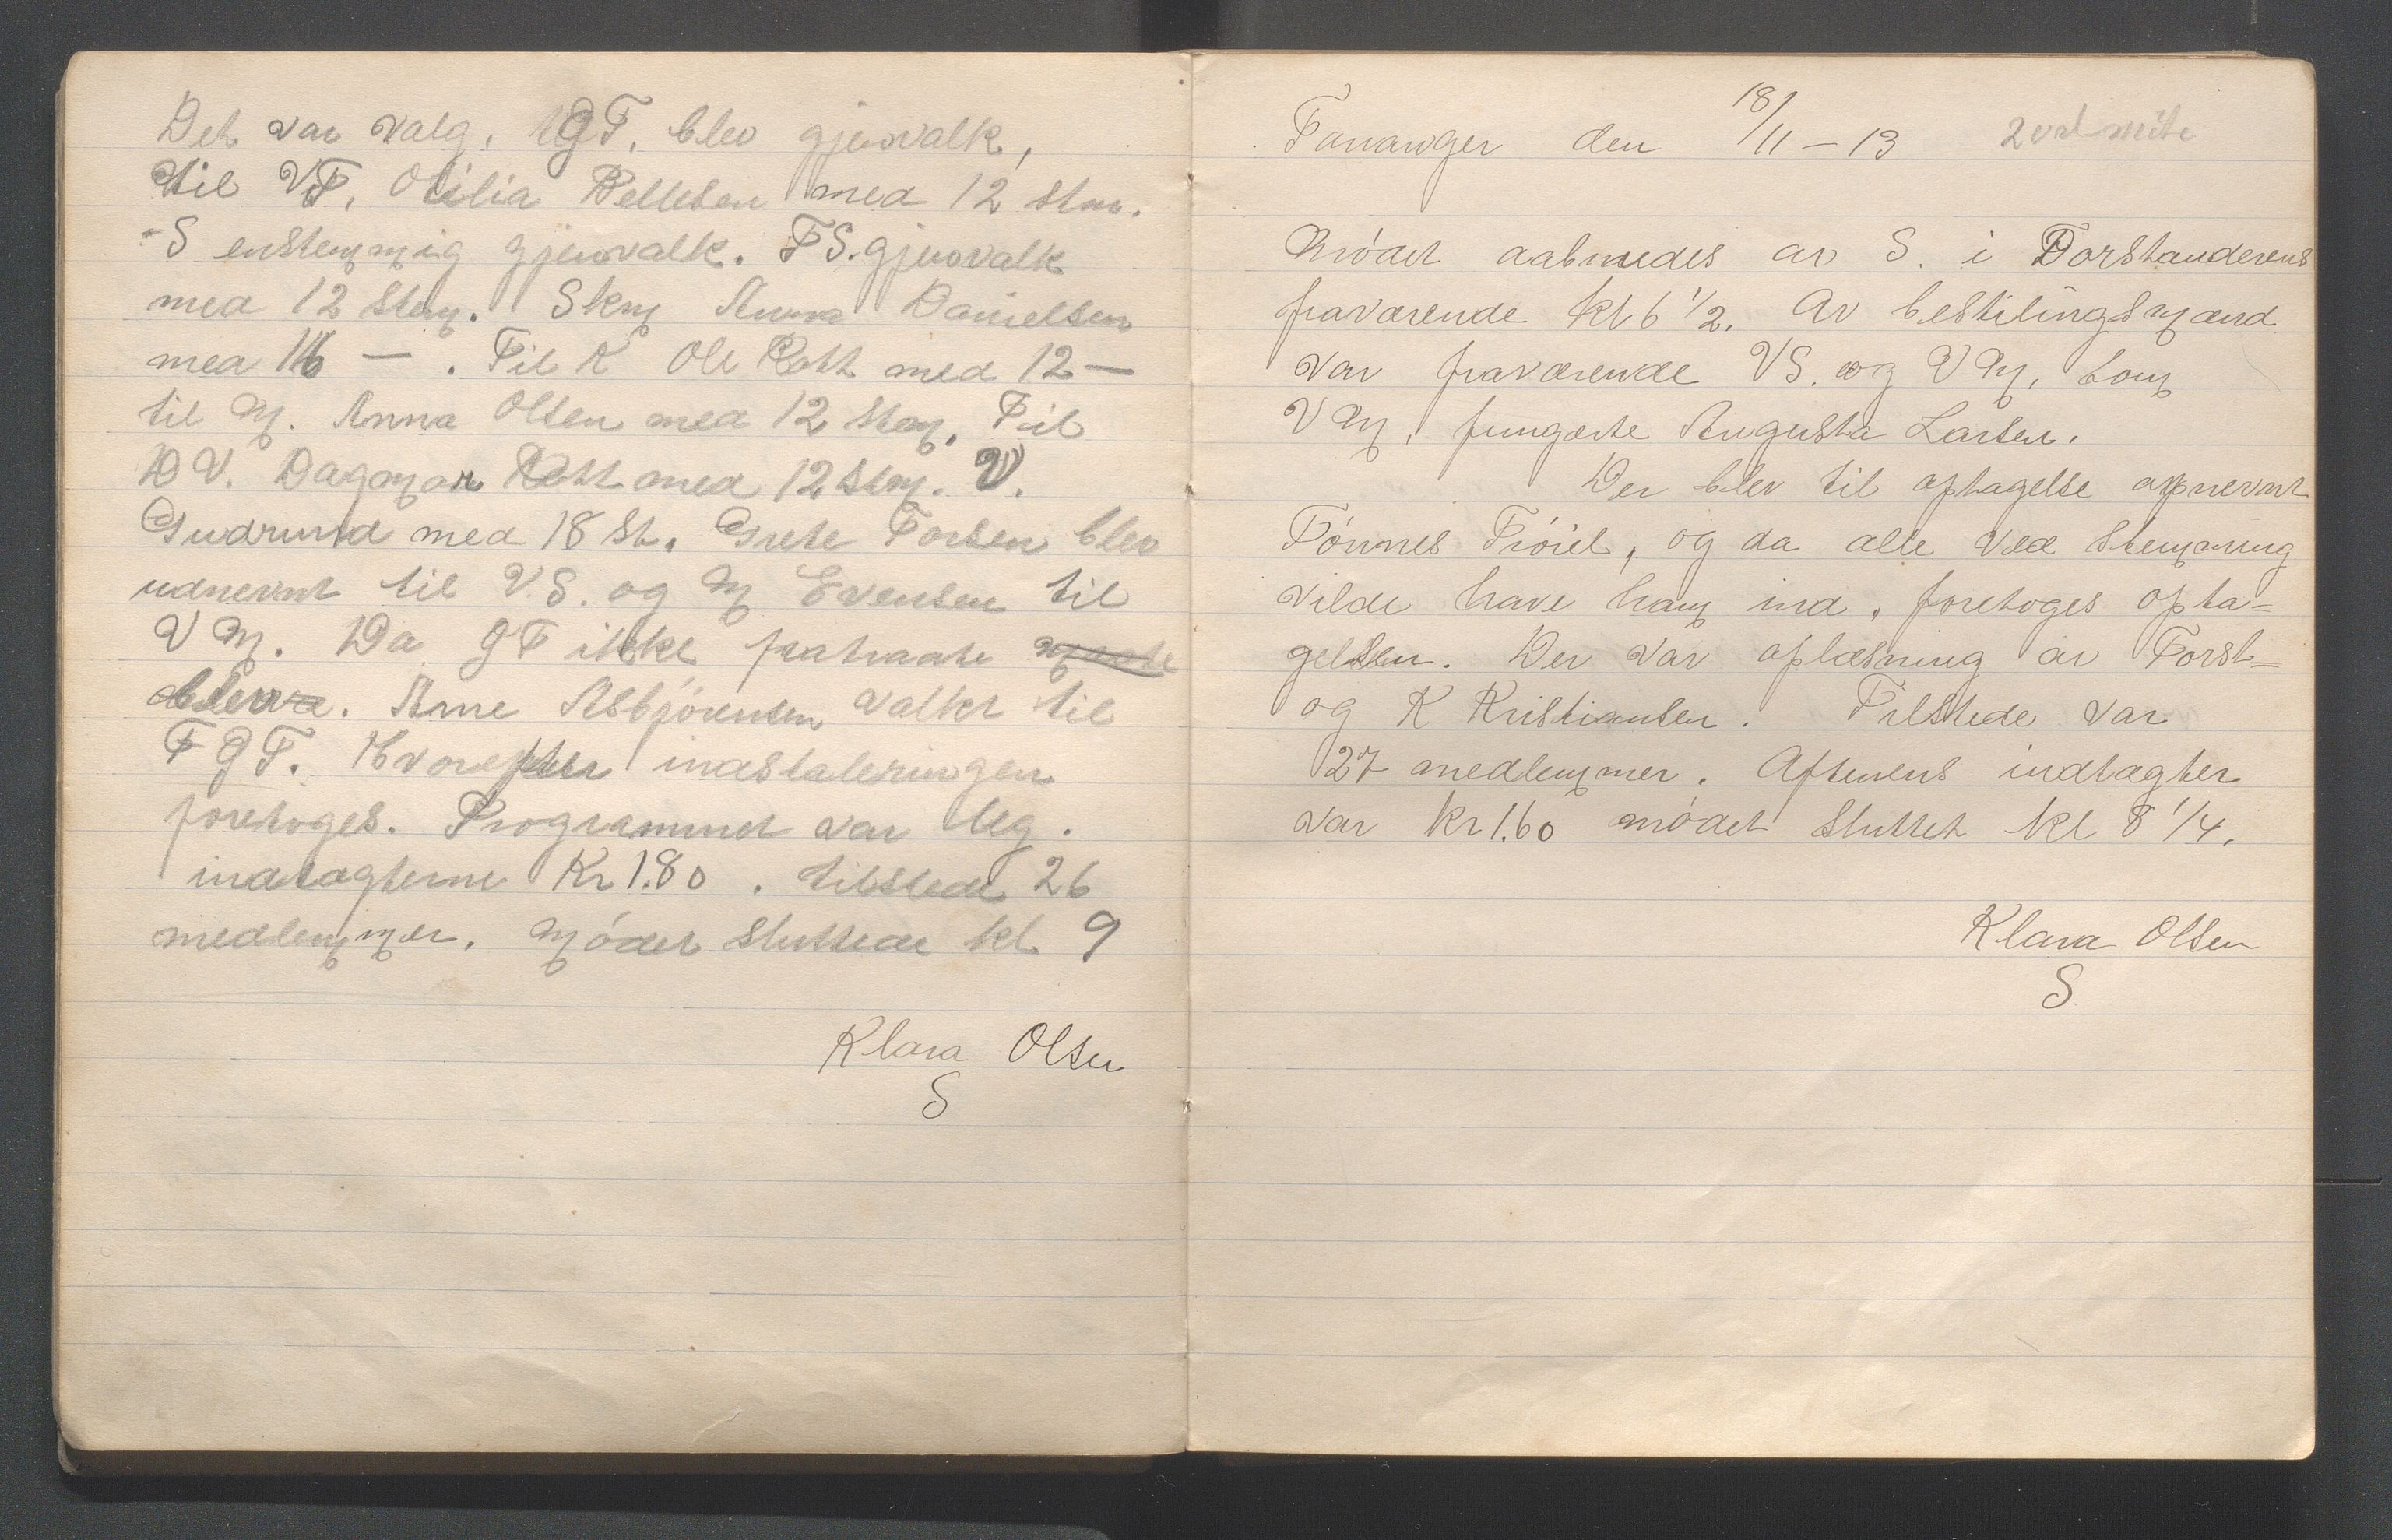 Det var valg. GT. blev gjenvalk,
til VT. Otilia Pellesen med 12 stm.
S enstemmig gjenvalk. FS. gjenvalk
med 12 stem. Skm Anna Danielsen
med 16 — . Til K Ole Rott med 12 —
til M. Anna Olsen med 12 stem. Til
DV. Dagmar Rott med 12 stm. V.
Gudrund med 18 St. Grete Torsen blev
udnevnt til V.S. og M Evensen til
VM. Da GT ikke fratraate
blev. Arne Asbjörensen valkt til
FGT. Hvorefter indstaleringen
foretoges. Programmet var leg.
indtagterne Kr 1.80 . tilstede 26
medlemmer. Mödet sluttede kl 9
Klara Olsen
S
Tananger den 18/11 – 13 2 ord. möte
Mödet aabnedes av S. i Forstanderens
fraværende kl 6 1/2. Av bestilingsmænd
var fraværende VS. og VM, som
VM. fungerte Augusta Larsen.
Der blev til optagelse opnevnt
Tönnes Tröiel, og da alle ved stemning
vilde have ham ind, foretoges opta=
gelsen. Der var oplæsning av Forst=
og K Kristiansen. Tilstede var
27 medlemmer. Aftenens indtagter
var Kr 1.60 mödet sluttet kl 8 1/4.
Klara Olsen
S.